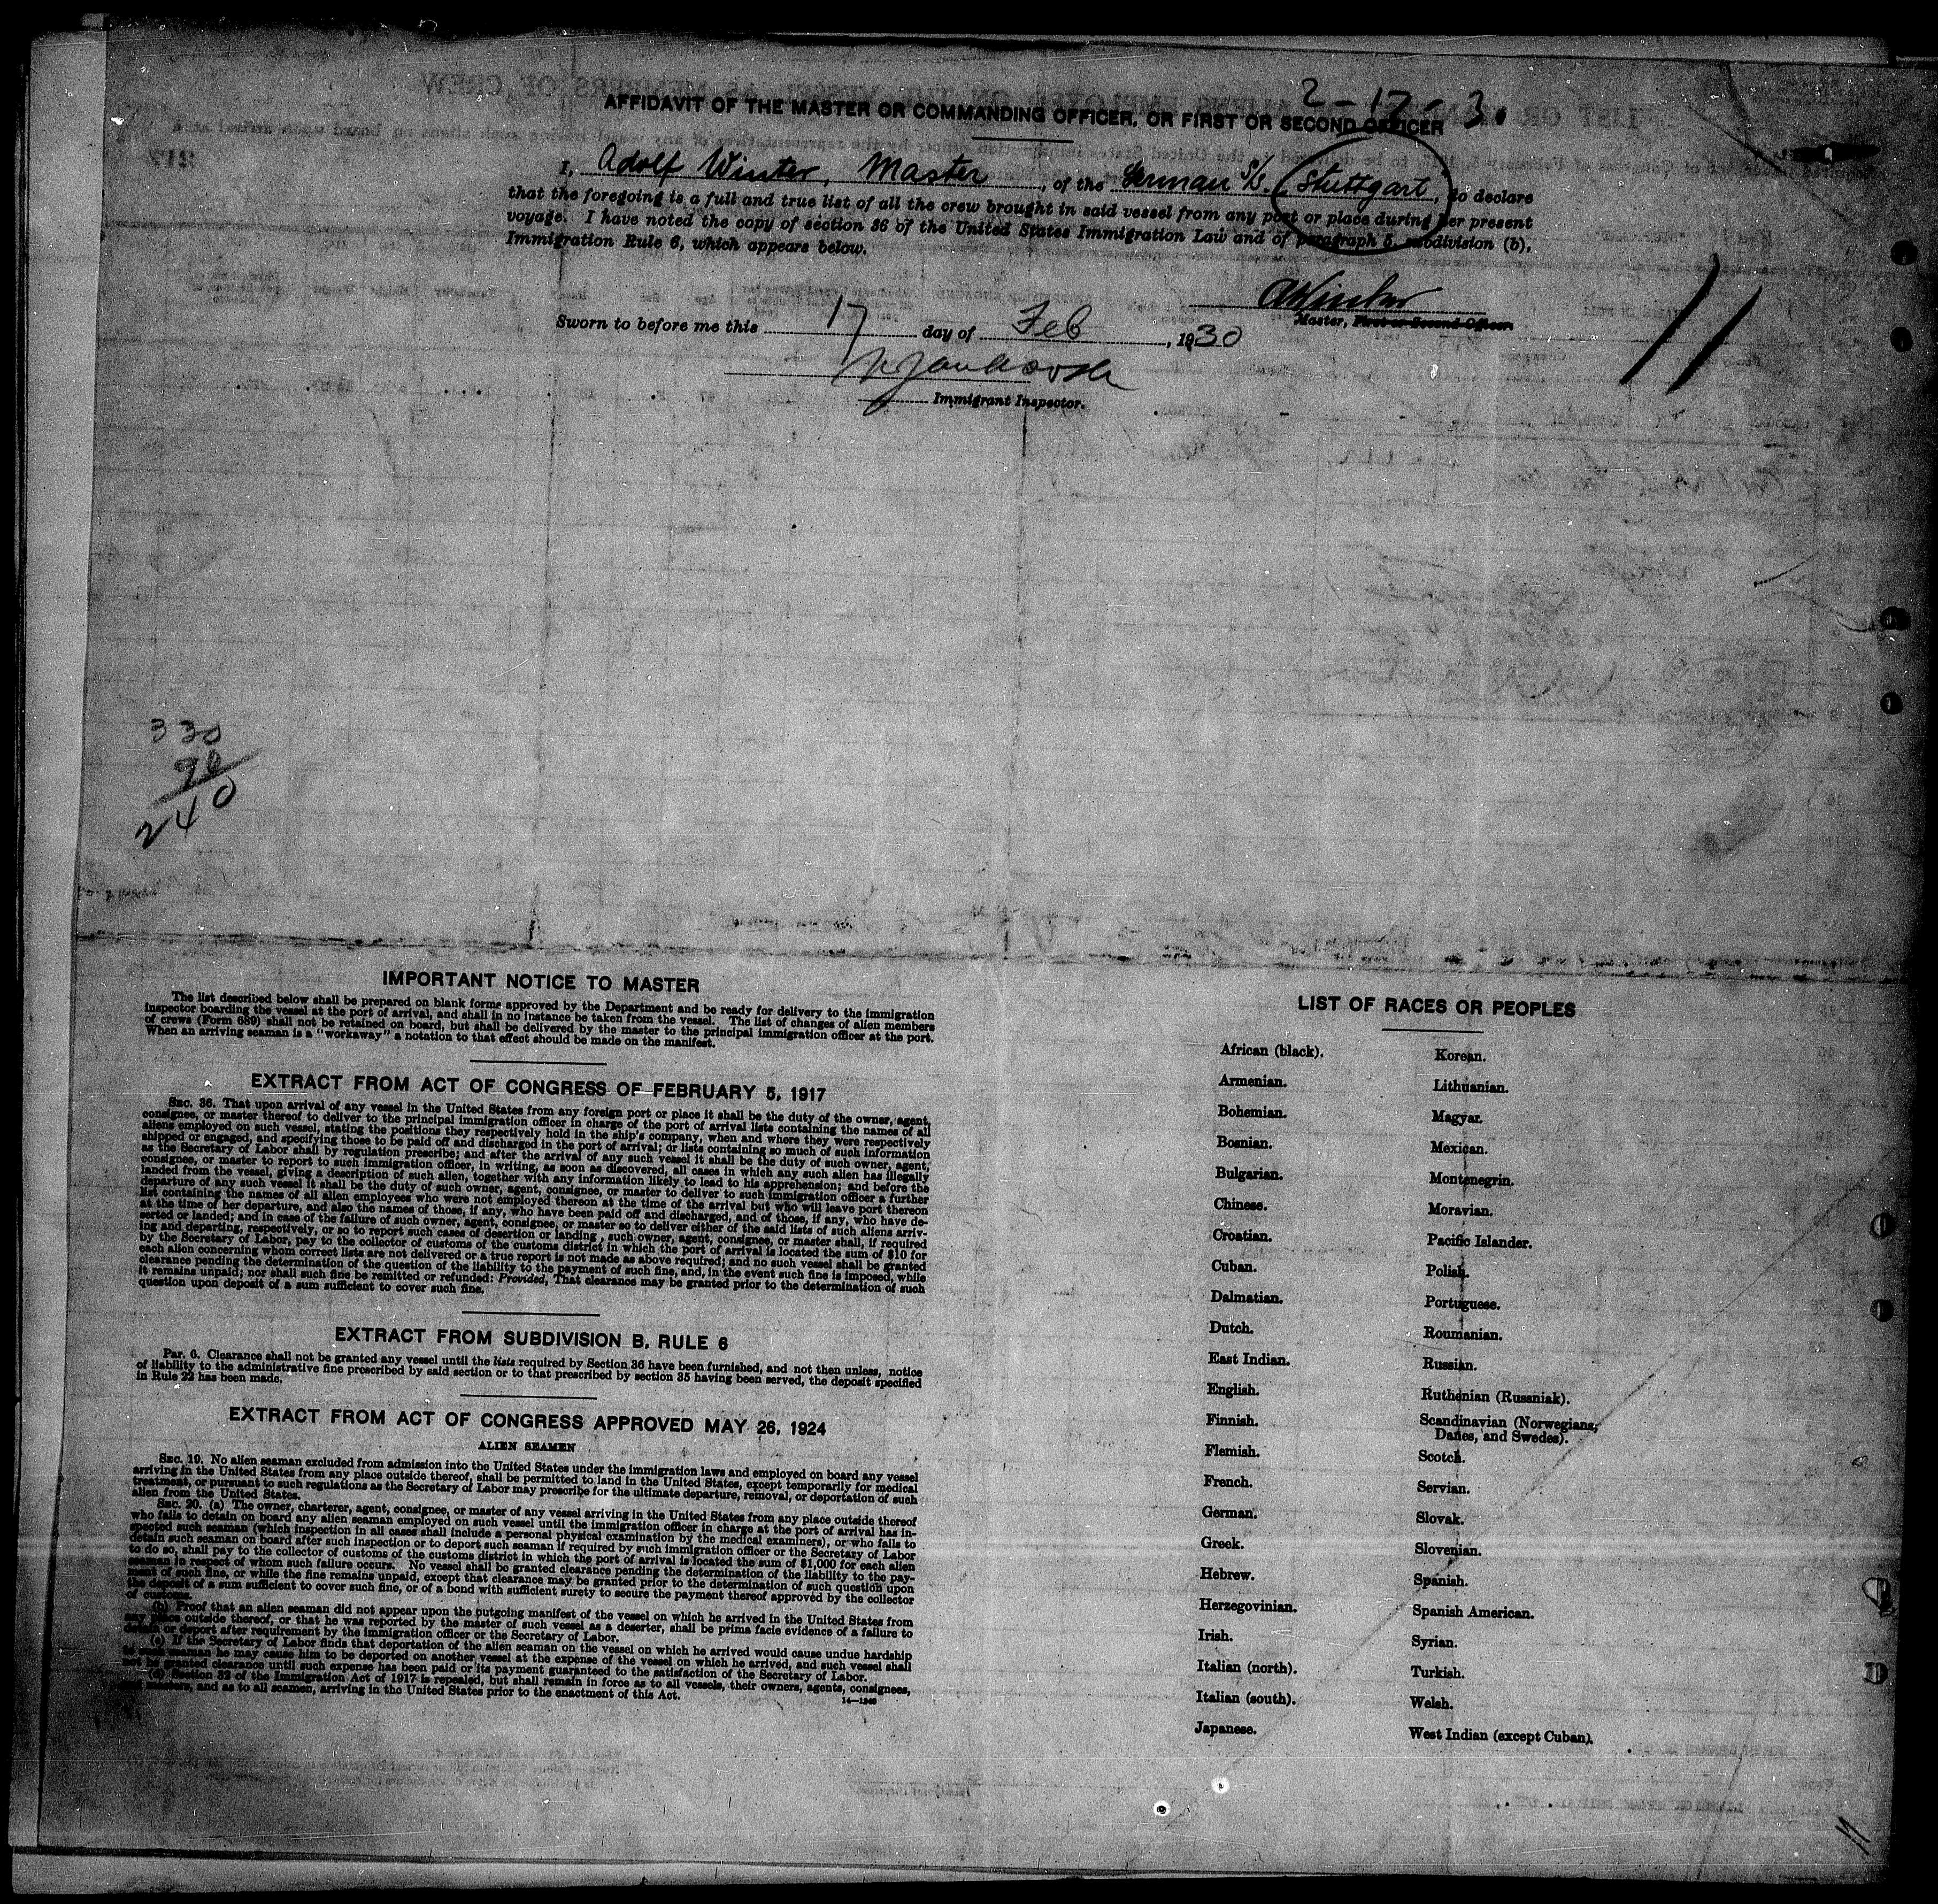 2-17-3.
AFFIDAVIT OF THE MASTER OR COMMANDING OFFICER, OR FIRST OR SECOND OFFICER
I, Adolf Winter, Master, of the German S/S. Stuttgart, do declare
that the foregoing is a full and true list of all the crew brought in said vessel from any port or place during her present
voyage. I have noted the copy of section 36 of the United States Immigration Law and of paragraph 6, subdivision (b),
Immigration Rule 6, which appears below.
AWinter
Master, First or Second Officer.
Sworn to before me this 17 day of Feb, 1930
Immigrant Inspector.
11
330
90
240
IMPORTANT NOTICE TO MASTER
The list described below shall be prepared on blank forms approved by the Department and be ready for delivery to the immigration
inspector boarding the vessel at the port of arrival, and shall in no instance be taken from the vessel. The list of changes of alien members
of crews (Form 689) shall not be retained on board, but shall be delivered by the master to the principal immigration officer at the port.
When an arriving seaman is a "workaway" a notation to that effect should be made on the manifest.
EXTRACT FROM ACT OF CONGRESS OF FEBRUARY 5, 1917
SEC. 36. That upon arrival of any vessel in the United States from any foreign port or place it shall be the duty of the owner, agent,
consignee, or master thereof to deliver to the principal immigration officer in charge of the port of arrival lists containing the names of all
aliens employed on such vessel, stating the positions they respectively hold in the ship's company, when and where they were respectively
shipped or engaged, and specifying those to be paid off and discharged in the port of arrival; or lists containing so much of such information
as the Secretary of Labor shall by regulation prescribe; and after the arrival of any such vessel it shall be the duty of such owner, agent,
consignee, or master to report to such immigration officer, in writing, as soon as discovered, all cases in which any such alien has illegally
landed from the vessel, giving a description of such alien, together with any information likely to lead to his apprehension; and before the
departure of any such vessel it shall be the duty of such owner, agent, consignee, or master to deliver to such immigration officer a further
list containing the names of all alien employees who were not employed thereon at the time of the arrival but who will leave port thereon
at the time of her departure, and also the names of those, if any, who have been paid off and discharged, and of those, if any, who have de-
serted or landed; and in case of the failure of such owner, agent, consignee, or master so to deliver either of the said lists of such aliens arriv-
ing and departing, respectively, or so to report such cases of desertion or landing, such owner, agent, consignee, or master shall, if required
by the Secretary of Labor, pay to the collector of customs of the customs district in which the port of arrival is located the sum of $10 for
each alien concerning whom correct lists are not delivered or a true report is not made as above required; and no such vessel shall be granted
clearance pending the determination of the question of the liability to the payment of such fine, and, in the event such fine is imposed, while
it remains unpaid; nor shall such fine be remitted or refunded: Provided, That clearance may be granted prior to the determination of such
question upon deposit of a sum sufficient to cover such fine.
EXTRACT FROM SUBDIVISION B, RULE 6
Par. 6. Clearance shall not be granted any vessel until the lists required by Section 36 have been furnished, and not then unless, notice
of liability to the administrative fine prescribed by said section or to that prescribed by section 35 having been served, the deposit specified
in Rule 22 has been made.
EXTRACT FROM ACT OF CONGRESS APPROVED MAY 26, 1924
ALIEN SEAMEN
SEC. 19. No alien seaman excluded from admission into the United States under the immigration laws and employed on board any vessel
arriving in the United States from any place outside thereof, shall be permitted to land in the United States, except temporarily for medical
treatment, or pursuant to such regulations as the Secretary of Labor may prescribe for the ultimate departure, removal, or deportation of such
alien from the United States.
SEC. 20. (a) The owner, charterer, agent, consignee, or master of any vessel arriving in the United States from any place outside thereof
who fails to detain on board any alien seaman employed on such vessel until the immigration officer in charge at the port of arrival has in-
spected such seaman (which inspection in all cases shall include a personal physical examination by the medical examiners), or who fails to
detain such seaman on board after such inspection or to deport such seaman if required by such immigration officer or the Secretary of Labor
to do so, shall pay to the collector of customs of the customs district in which the port of arrival is located the sum of $1,000 for each alien
seaman in respect of whom such failure occurs. No vessel shall be granted clearance pending the determination of the liability to the pay-
ment of such fine, or while the fine remains unpaid, except that clearance may be granted prior to the determination of such question upon
the deposit of a sum sufficient to cover such fine, or of a bond with sufficient surety to secure the payment thereof approved by the collector
of customs.
(b) Proof that an alien seaman did not appear upon the outgoing manifest of the vessel on which he arrived in the United States from
any place outside thereof, or that he was reported by the master of such vessel as a deserter, shall be prima facie evidence of a failure to
detain or deport after requirement by the immigration officer or the Secretary of Labor.
(c) If the Secretary of Labor finds that deportation of the alien seaman on the vessel on which he arrived would cause undue hardship
to such seaman he may cause him to be deported on another vessel at the expense of the vessel on which he arrived, and such vessel shall
not be granted clearance until such expense has been paid or its payment guaranteed to the satisfaction of the Secretary of Labor.
(d) Section 32 of the Immigration Act of 1917 is repealed, but shall remain in force as to all vessels, their owners, agents, consignees,
and masters, and as to all seamen, arriving in the United States prior to the enactment of this Act.
14—1240
LIST OF RACES OR PEOPLES
African (black).
Armenian.
Bohemian.
Bosnian.
Bulgarian.
Chinese.
Croatian.
Cuban.
Dalmatian.
Dutch.
East Indian.
English.
Finnish.
Flemish.
French.
German.
Greek.
Hebrew.
Herzegovinian.
Irish.
Italian (north).
Italian (south).
Japanese.
Korean.
Lithuanian.
Magyar.
Mexican.
Montenegrin.
Moravian.
Pacific Islander.
Polish.
Portuguese.
Roumanian.
Russian.
Ruthenian (Russniak).
Scandinavian (Norwegians,
Danes, and Swedes).
Scotch.
Servian.
Slovak.
Slovenian.
Spanish.
Spanish American.
Syrian.
Turkish.
Welsh.
West Indian (except Cuban).